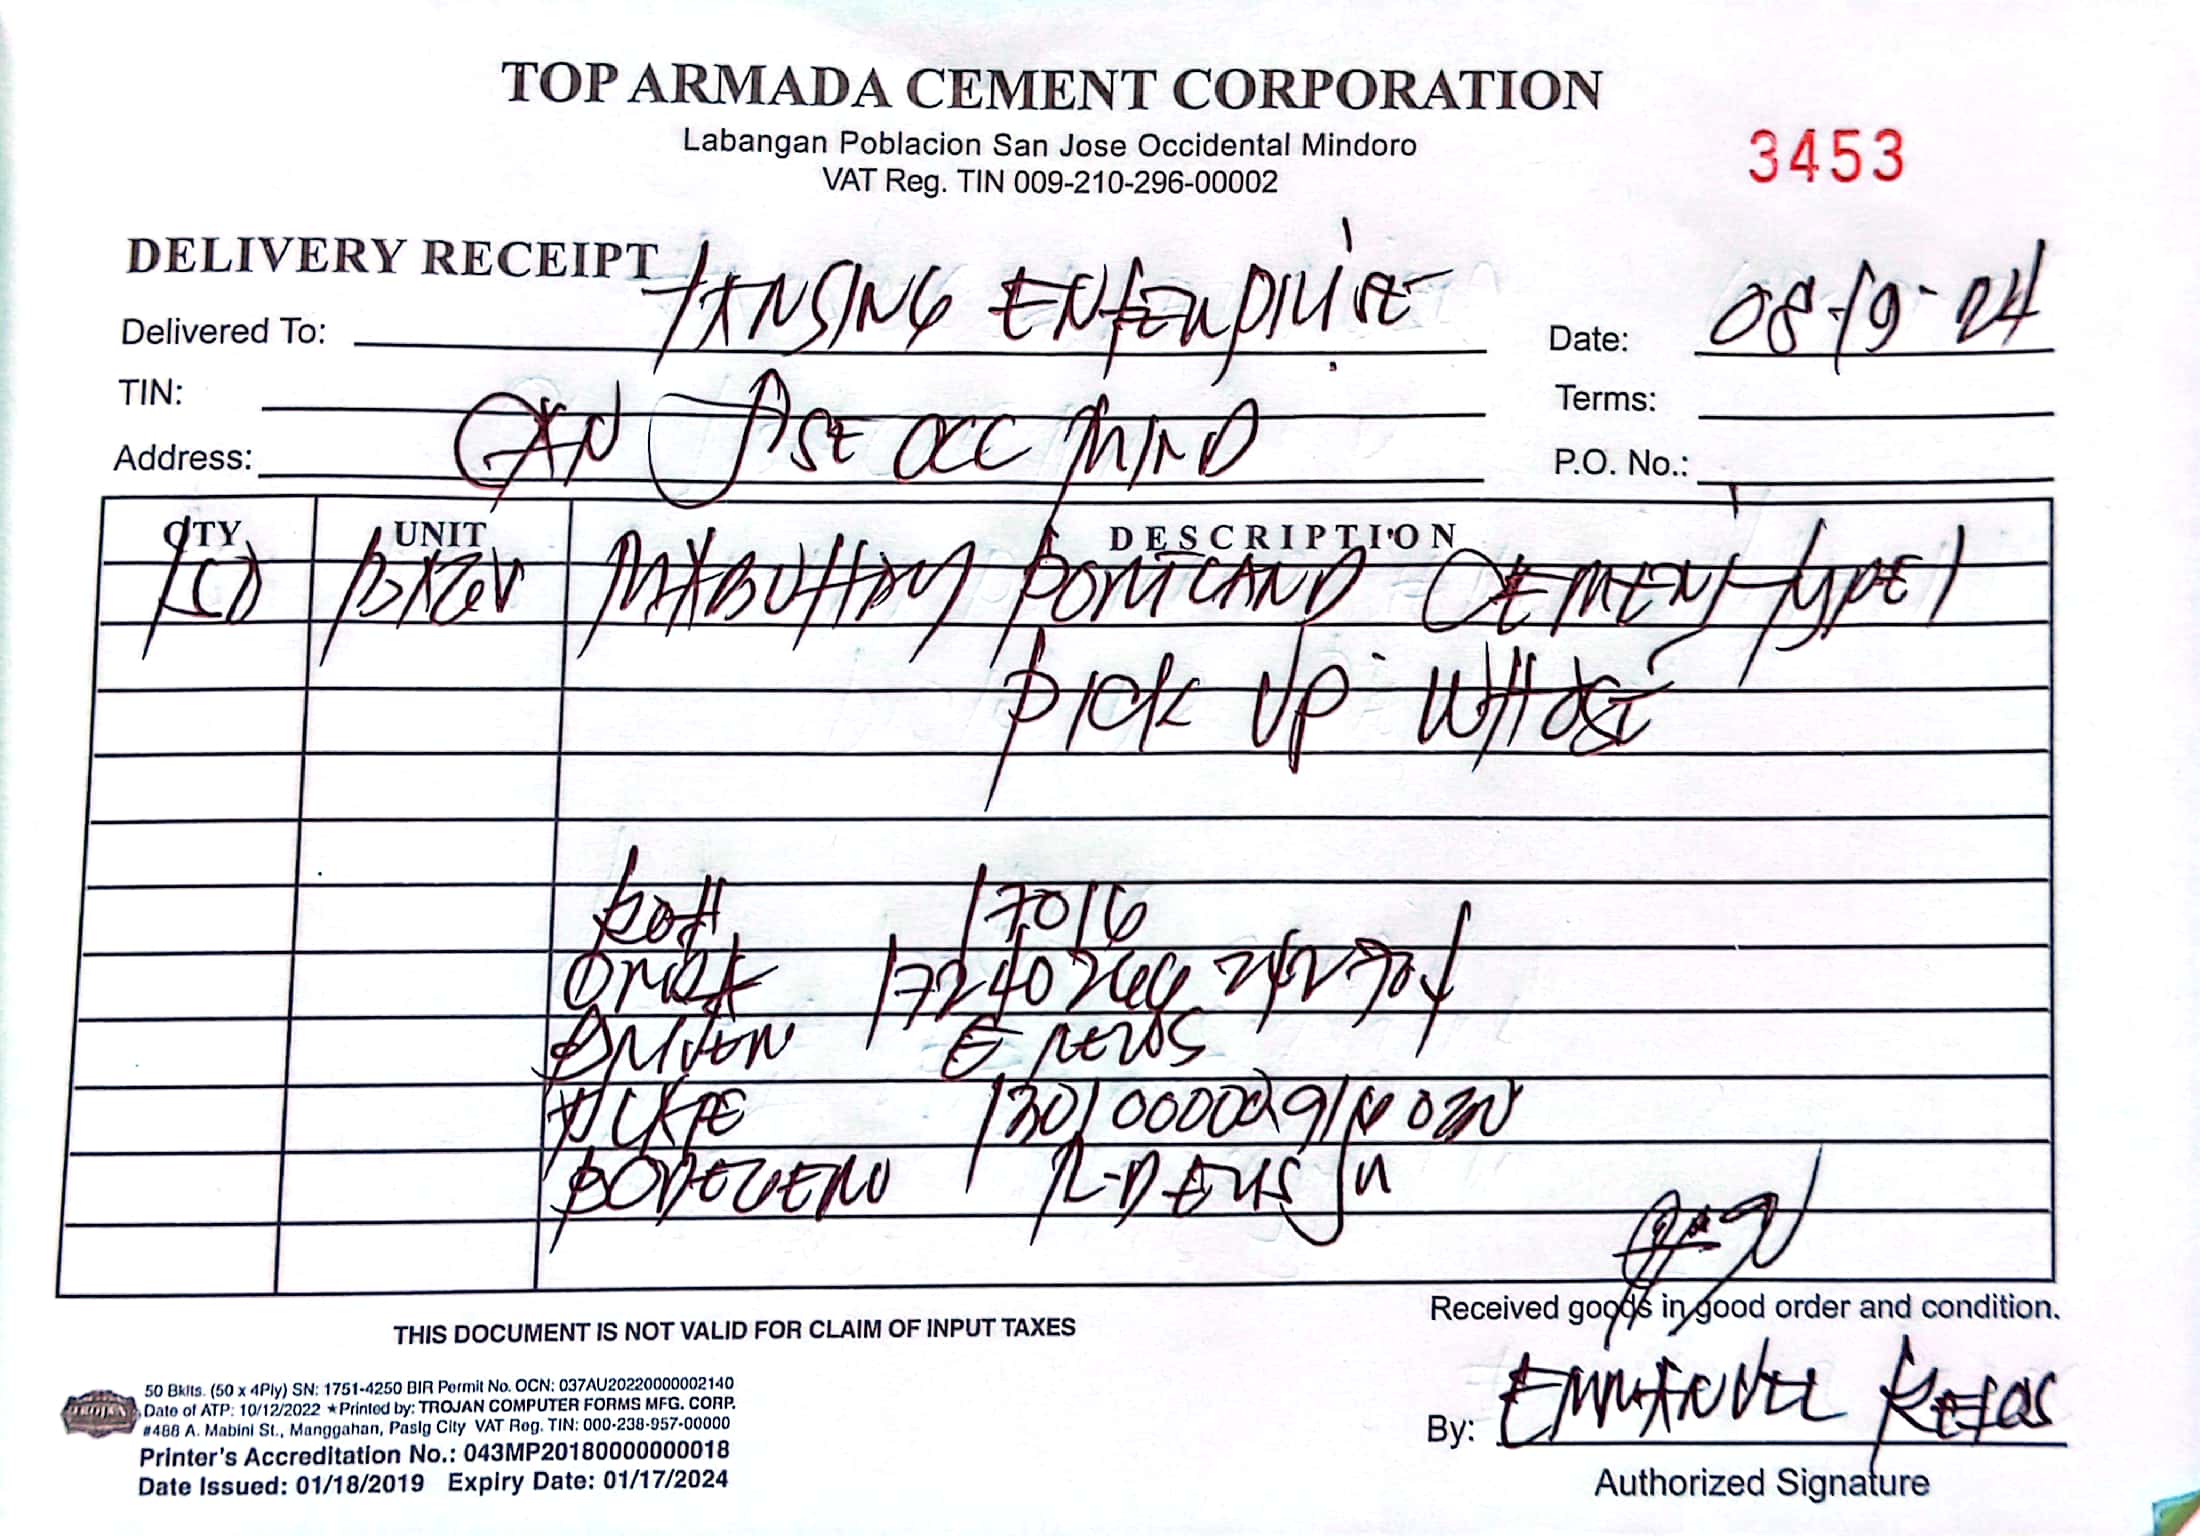 TOP ARMADA CEMENT CORPORATION
Labangan Poblacion San Jose Occidental Mindoro
VAT Reg. TIN 009-210-296-00002
3453
DELIVERY RECEIPT
Delivered To: TANSING ENTERPRISE
Date: 08-19-24
TIN:
Terms:
Address: SAN JOSE OCC MIND
P.O. No.:
QTY UNIT DESCRIPTION
PORTLAND CEMENT TYPE 1
PICK UP WHOSE
17016
DRIVER E REJOS
BODEGERO
Received goods in good order and condition.
By: EMMANUEL REJOS
Authorized Signature
THIS DOCUMENT IS NOT VALID FOR CLAIM OF INPUT TAXES
50 Bklts. (50 x 4Ply) SN: 1751-4250 BIR Permit No. OCN: 037AU20220000002140
Date of ATP: 10/12/2022 ★Printed by: TROJAN COMPUTER FORMS MFG. CORP.
#488 A. Mabini St., Manggahan, Pasig City VAT Reg. TIN: 000-238-957-00000
Printer's Accreditation No.: 043MP20180000000018
Date Issued: 01/18/2019 Expiry Date: 01/17/2024